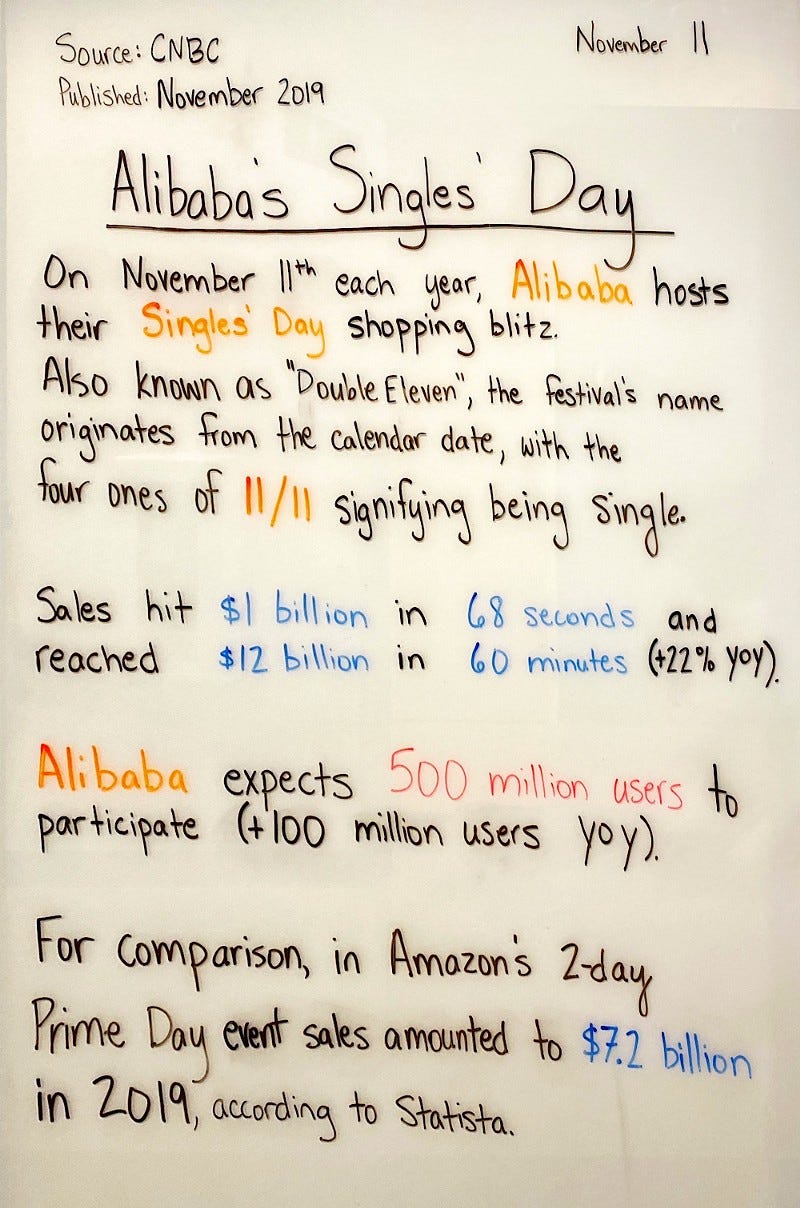 Source: CNBC
November 11
Published: November 2019
Alibaba's Singles' Day
On November 11th each year, Alibaba hosts
their Singles' Day shopping blitz.
Also known as "Double Eleven", the festival's name
originates from the calendar date, with the
four ones of 11/11 signifying being single.
Sales hit $1 billion in 68 seconds and
reached $12 billion in 60 minutes (+22% yoy).
Alibaba expects 500 million users to
participate (+100 million users yoy).
For comparison, in Amazon's 2-day
Prime Day event sales amounted to $7.2 billion
in 2019, according to Statista.